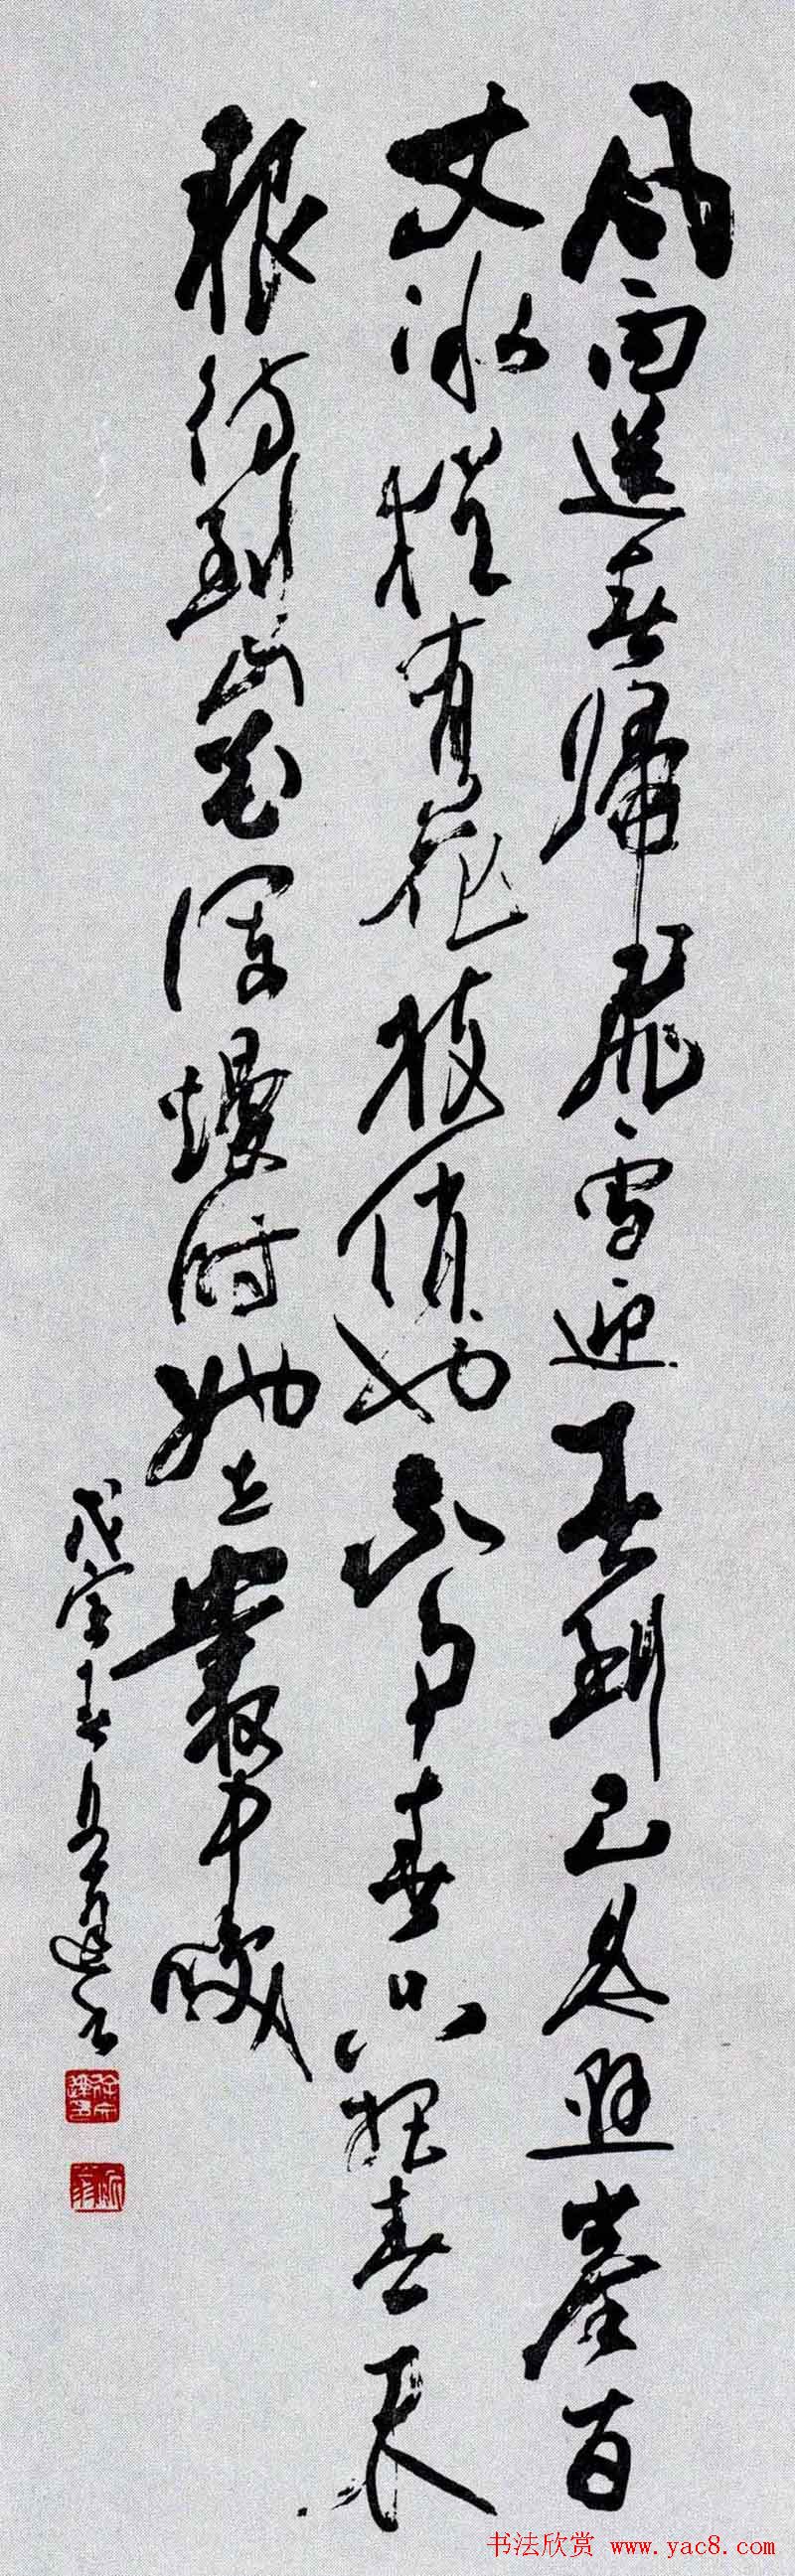 风雨送春歸飛雪迎春到已是悬崖百
丈冰犹有花枝俏也不争春只把春来
报待到山花烂熳时她在叢中咲
戊寅春
书法欣赏 www.yac8.com